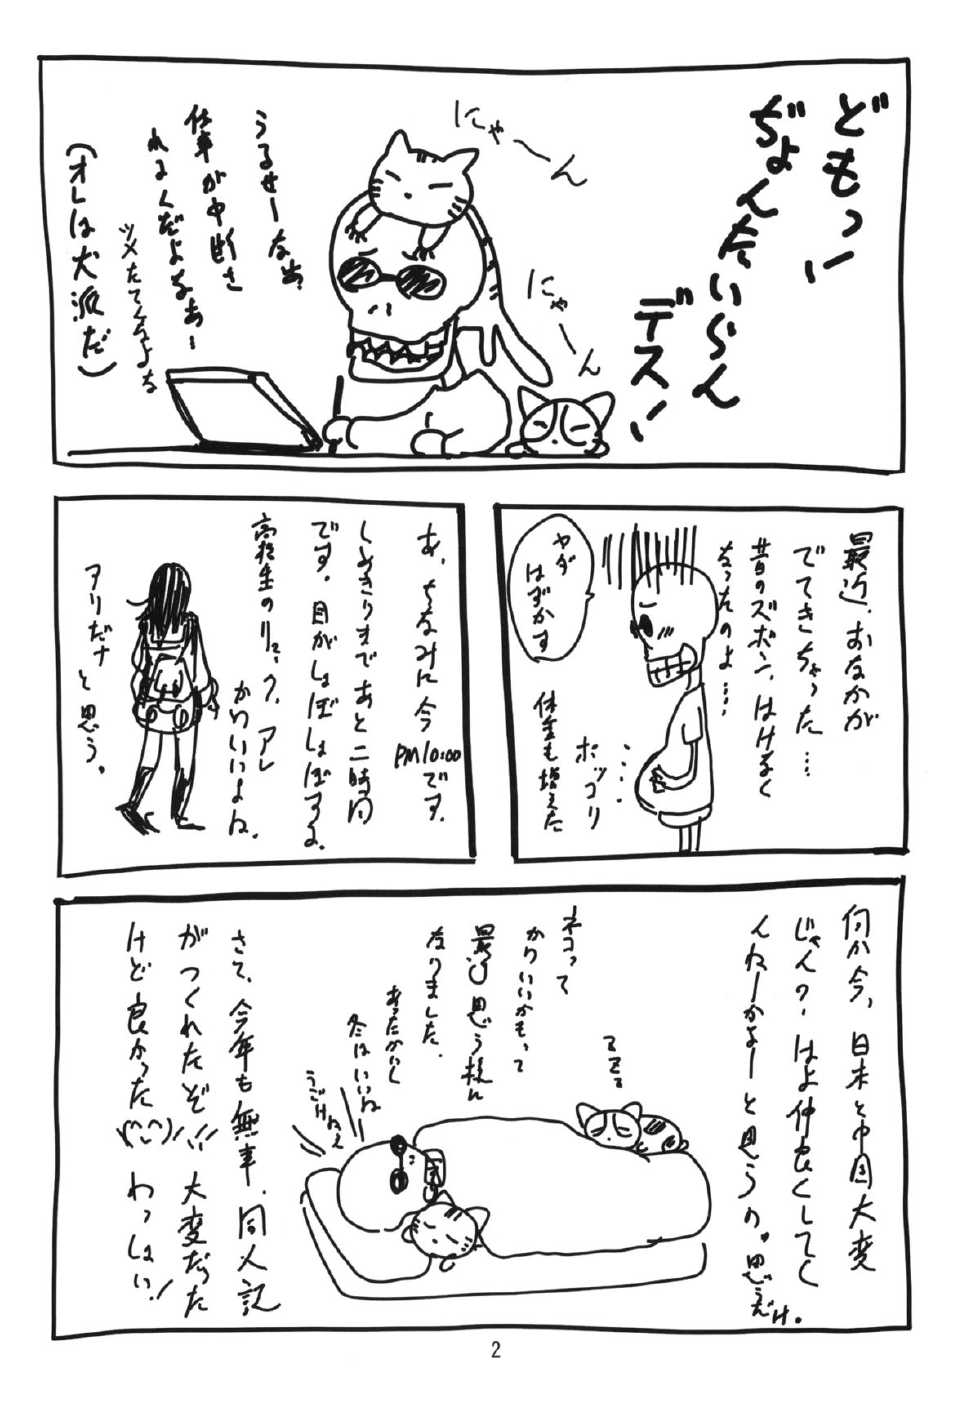 どもっ!
ぢょんたいらん
デス!
にゃーん
にゃーん
うるせーなぁ
仕事が中断さ
れるくだよなぁー
ツメたてんなよな
(オレは犬派だ)
最近、おなかが
でてきちゃった…
昔のズボン、はけなく
なったのよ…
ヤダ
はずかす
ポッコリ
体重も増えた
あ、ちなみに今
PM10:00です。
しめきりまであと二時間
です。目がしょぼしょぼするよ
高校生のリュック、アレ
かわいいよね。
アリだナ
と思う。
何か今、日本と中国大変
じゃん?はよ仲良くしてく
んねーかなーと思うの。思うだけ。
ネコって
かわいいかもって
最近思う様に
なりました。
あったかいし
冬はいいね
うごけねえ
さて、今年も無事、同人誌
がつくれたぞ!!! 大変だった
けど良かった(^-^)// わっしょい!
2